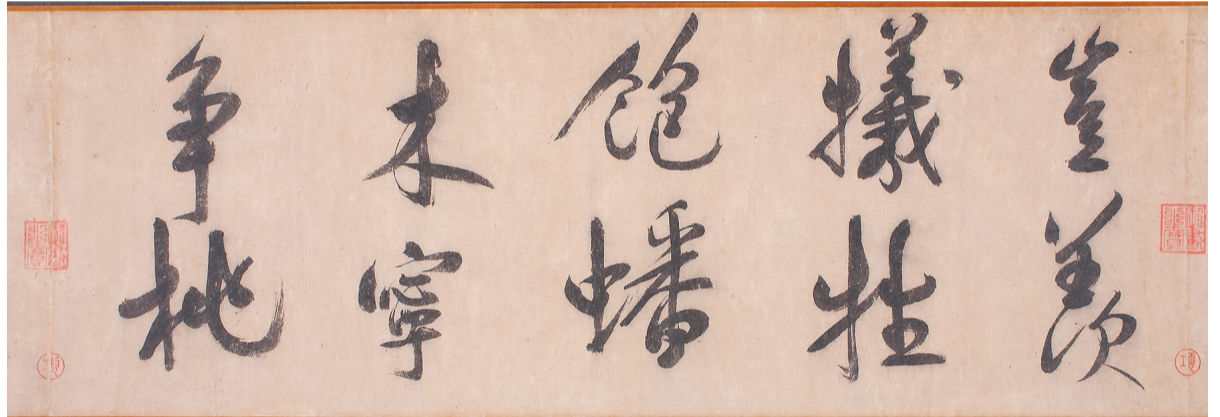 豈羨
犧牲
飽蟠
木寧
爭桃
項
項